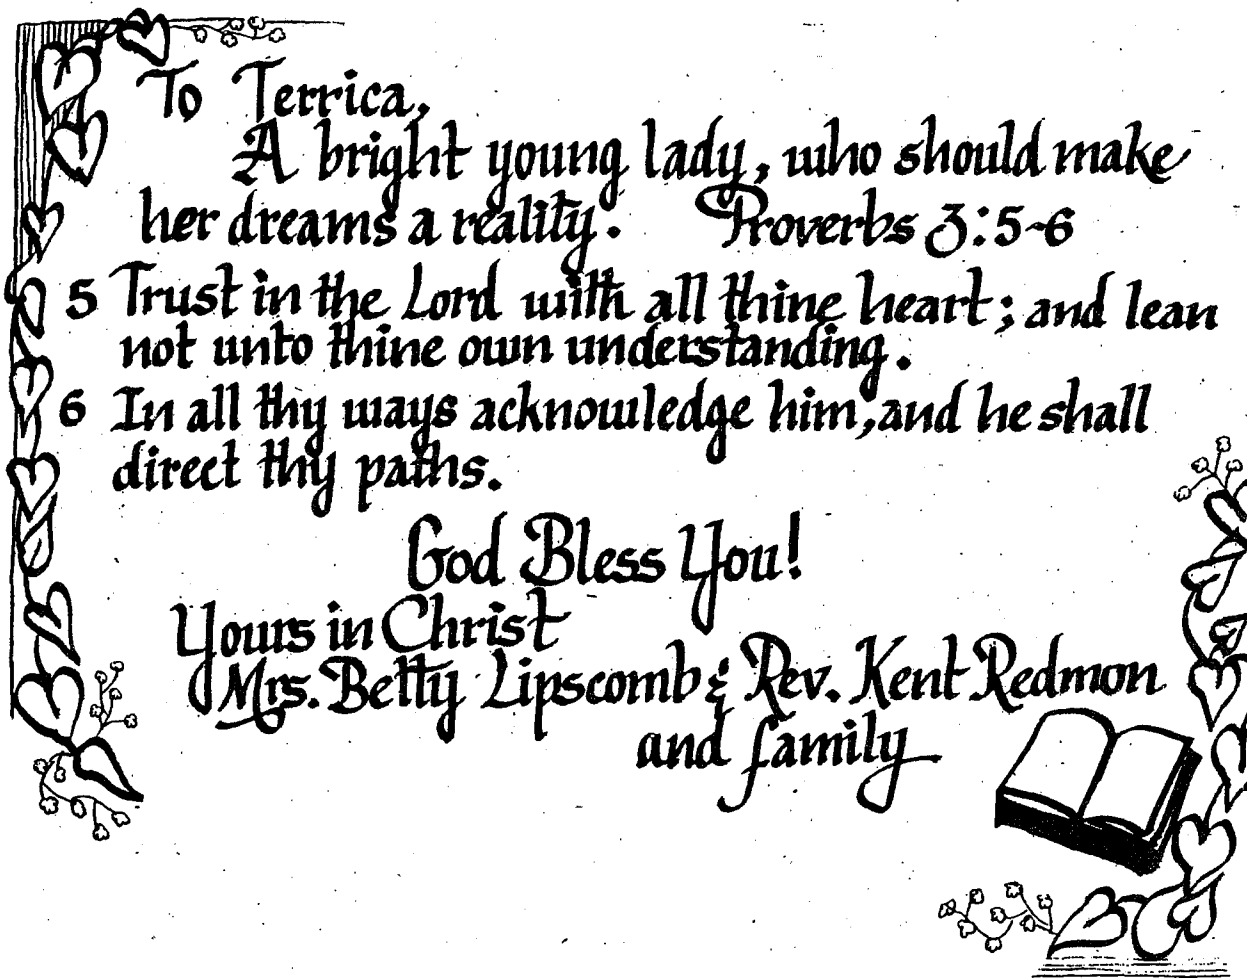 To Terrica,
A bright young lady, who should make
her dreams a reality. Proverbs 3:5-6
5 Trust in the Lord with all thine heart; and lean
not unto thine own understanding.
6 In all thy ways acknowledge him, and he shall
direct thy paths.
God Bless You!
Yours in Christ
Mrs. Betty Lipscomb & Rev. Kent Redmon
and family